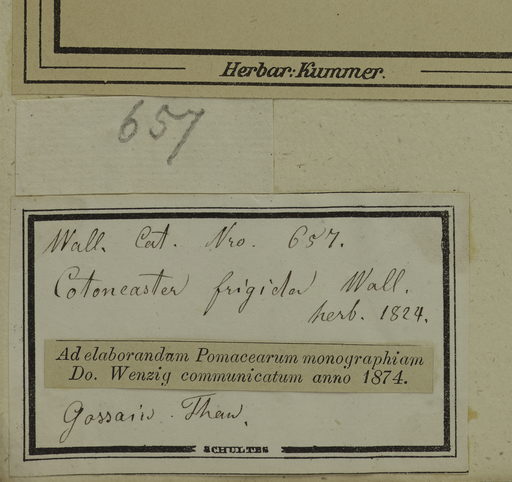 Herbar: Kummer.
657
Wall. Cat. Nro. 657.
Cotoneaster frigida Wall.
herb. 1824.
Ad elaborandam Pomacearum monographiam
Do. Wenzig communicatum anno 1874.
Gossain Than.
SCHULTES